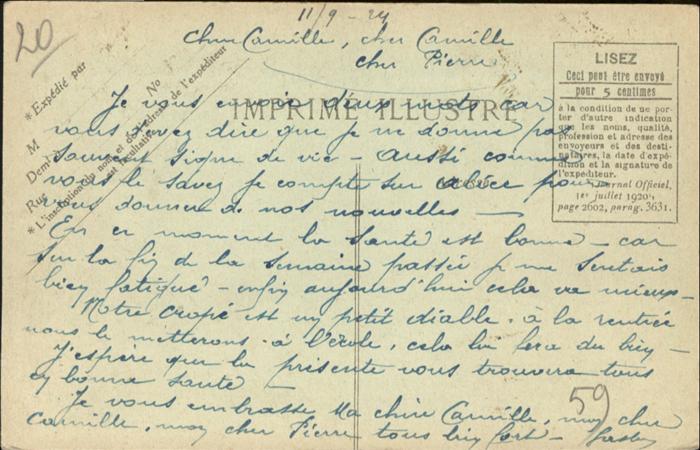 20
11/9 - 24
Chère Camille, cher Camille
cher Pierre
Je vous envoie deux mots car
vous devez dire que je ne donne pas
souvent signe de vie - aussi comme
vous le savez je compte sur Alice pour
vous donner de nos nouvelles -
En ce moment la santé est bonne - car
sur la fin de la semaine passée je me sentais
bien fatigué - enfin aujourd'hui cela va mieux -
Notre crapé est un petit diable. à la rentrée
nous le metterons à l'école, cela lui fera du bien -
J'espère que la présente vous trouvera tous
en bonne santé -
Je vous embrasse Ma chère Camille, mon cher
Camille, mon cher Pierre tous bien fort -
59
IMPRIMÉ ILLUSTRÉ
* Expédié par
M
Dem<sup>t</sup> à
Rue
N<sup>o</sup>
* L'inscription du nom et de l'adresse de l'expéditeur
est facultative
LISEZ
Ceci peut être envoyé
pour 5 centimes
à la condition de ne por-
ter d'autre indication
que les noms, qualité,
profession et adresse des
envoyeurs et des desti-
nataires, la date d'expé-
dition et la signature de
l'expéditeur.
Journal Officiel,
1er juillet 1920,
page 2602, parag. 3631.